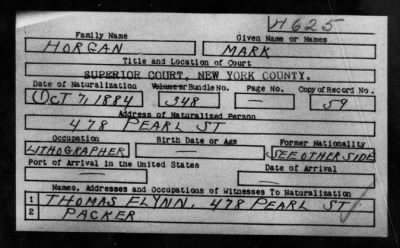 H625
Family Name Given Name or Names
HORGAN MARK
Title and Location of Court
SUPERIOR COURT, NEW YORK COUNTY.
Date of Naturalization Volume or Bundle No. Page No. Copy of Record No.
OCT 7, 1884 348 — 59
Address of Naturalized Person
478 PEARL ST
Occupation Birth Date or Age Former Nationality
LITHOGRAPHER — SEE OTHER SIDE
Port of Arrival in the United States Date of Arrival
— —
Names, Addresses and Occupations of Witnesses To Naturalization
1 THOMAS FLYNN. 478 PEARL ST
2 PACKER